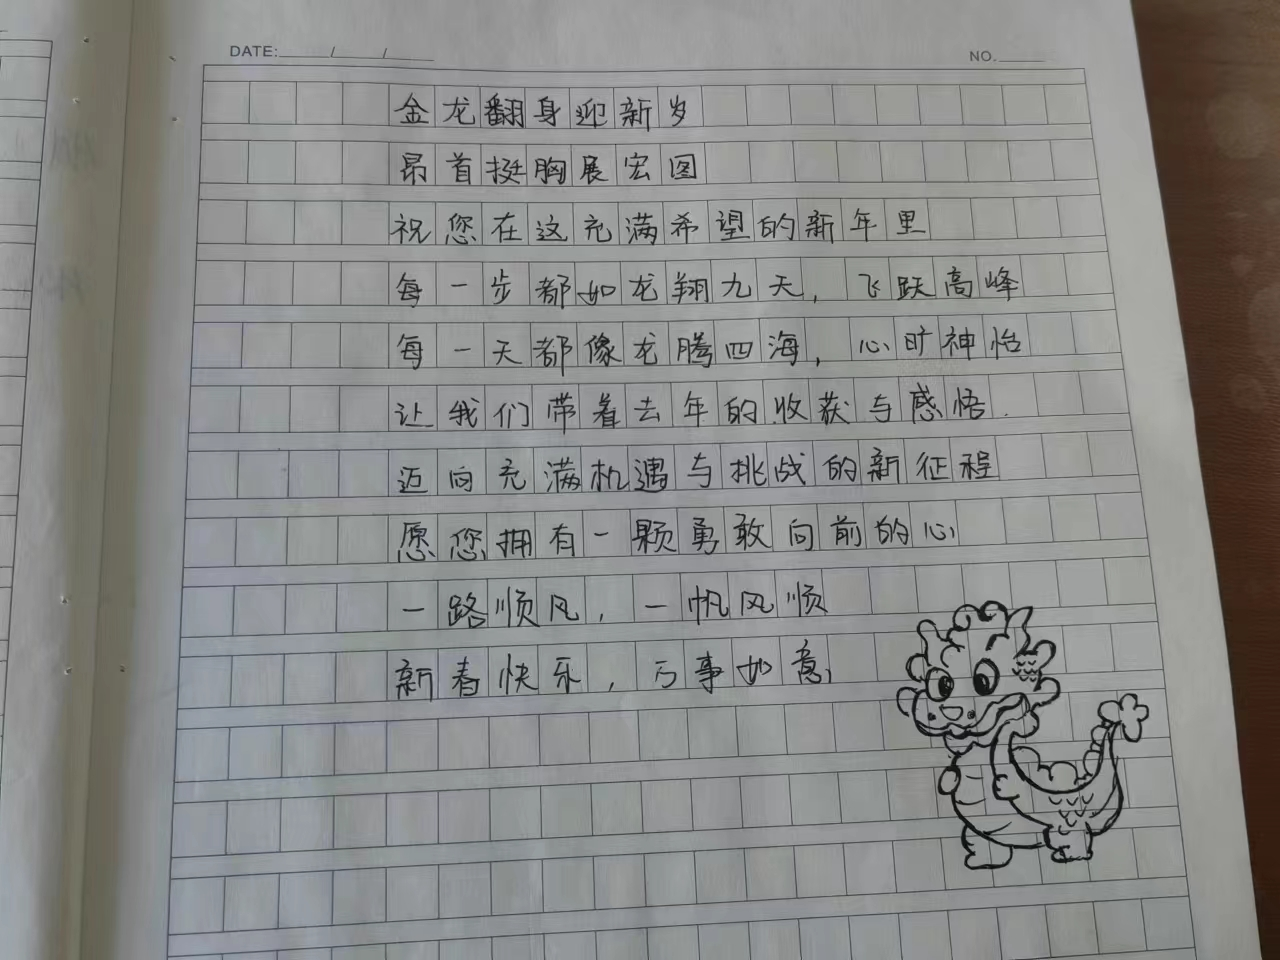 DATE:____/____/____
NO.____
金龙翻身迎新岁
昂首挺胸展宏图
祝您在这充满希望的新年里
每一步都如龙翔九天，飞跃高峰
每一天都像龙腾四海，心旷神怡
让我们带着去年的收获与感悟.
迈向充满机遇与挑战的新征程
愿您拥有一颗勇敢向前的心
一路顺风，一帆风顺
新春快乐，万事如意，